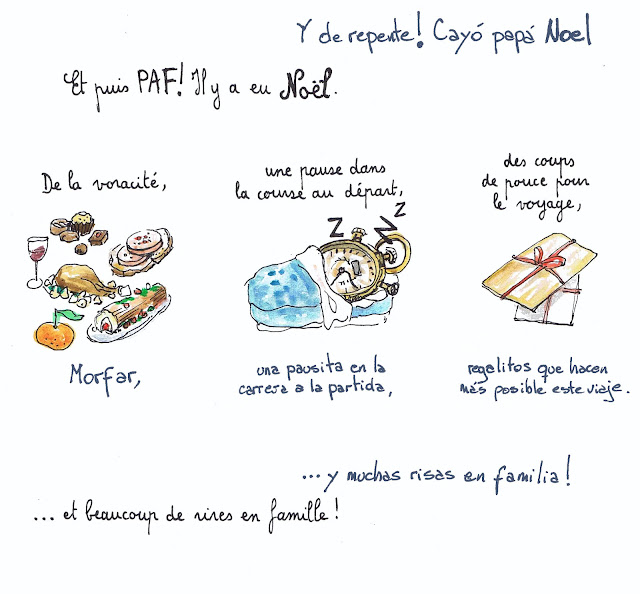 Y de repente! Cayó papá Noel
Et puis PAF! Il y a eu Noël.
De la voracité,
une pause dans
la course au départ,
des coups
de pouce pour
le voyage,
Z Z Z
Morfar,
una pausita en la
carrera a la partida,
regalitos que hacen
más posible este viaje.
...y muchas risas en familia!
... et beaucoup de rires en famille!